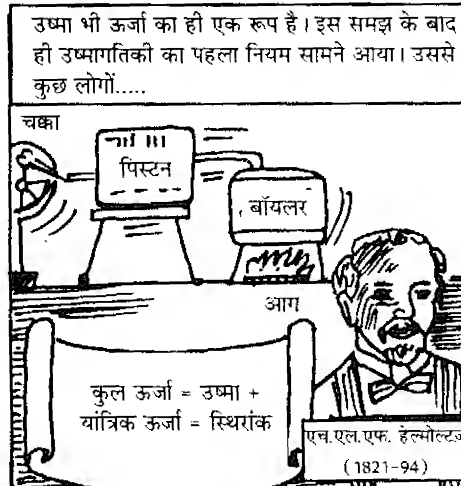 उष्मा भी ऊर्जा का ही एक रूप है। इस समझ के बाद
ही उष्मागतिकी का पहला नियम सामने आया। उससे
कुछ लोगों.....
चक्का
पिस्टन
बॉयलर
आग
कुल ऊर्जा = उष्मा +
यांत्रिक ऊर्जा = स्थिरांक
एच.एल.एफ. हेल्मोल्टज़
(1821-94)